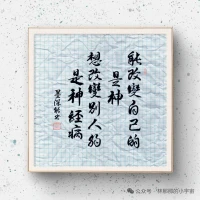 能改變自己的
是神
想改變別人的
是神經病
公众号 · 的小宇宙